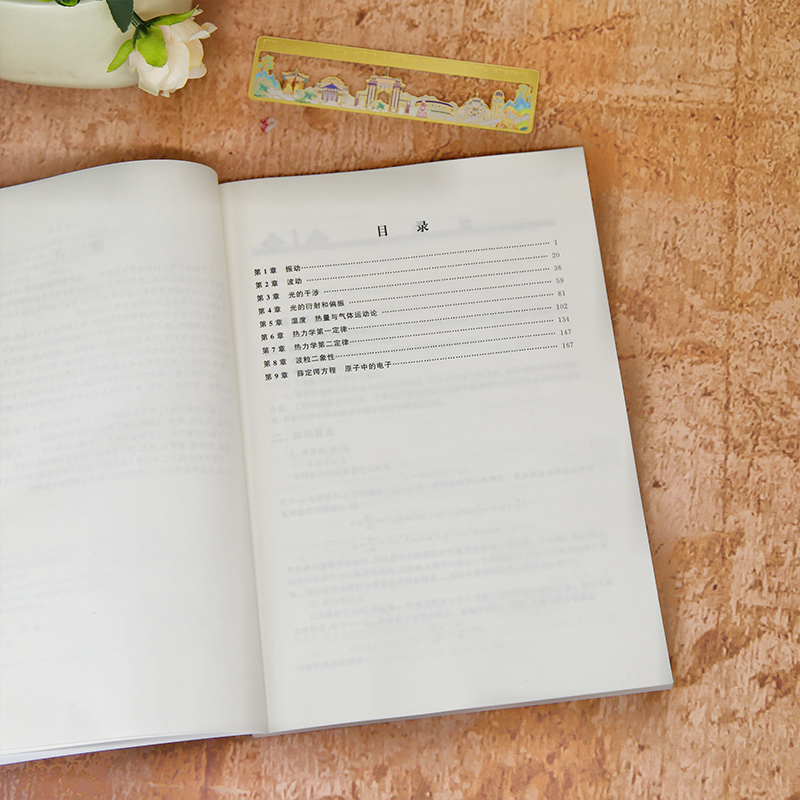 目 录
第1章 振动 1
第2章 波动 20
第3章 光的干涉 36
第4章 光的衍射和偏振 59
第5章 温度 热量与气体运动论 81
第6章 热力学第一定律 102
第7章 热力学第二定律 134
第8章 波粒二象性 147
第9章 薛定谔方程 原子中的电子 167